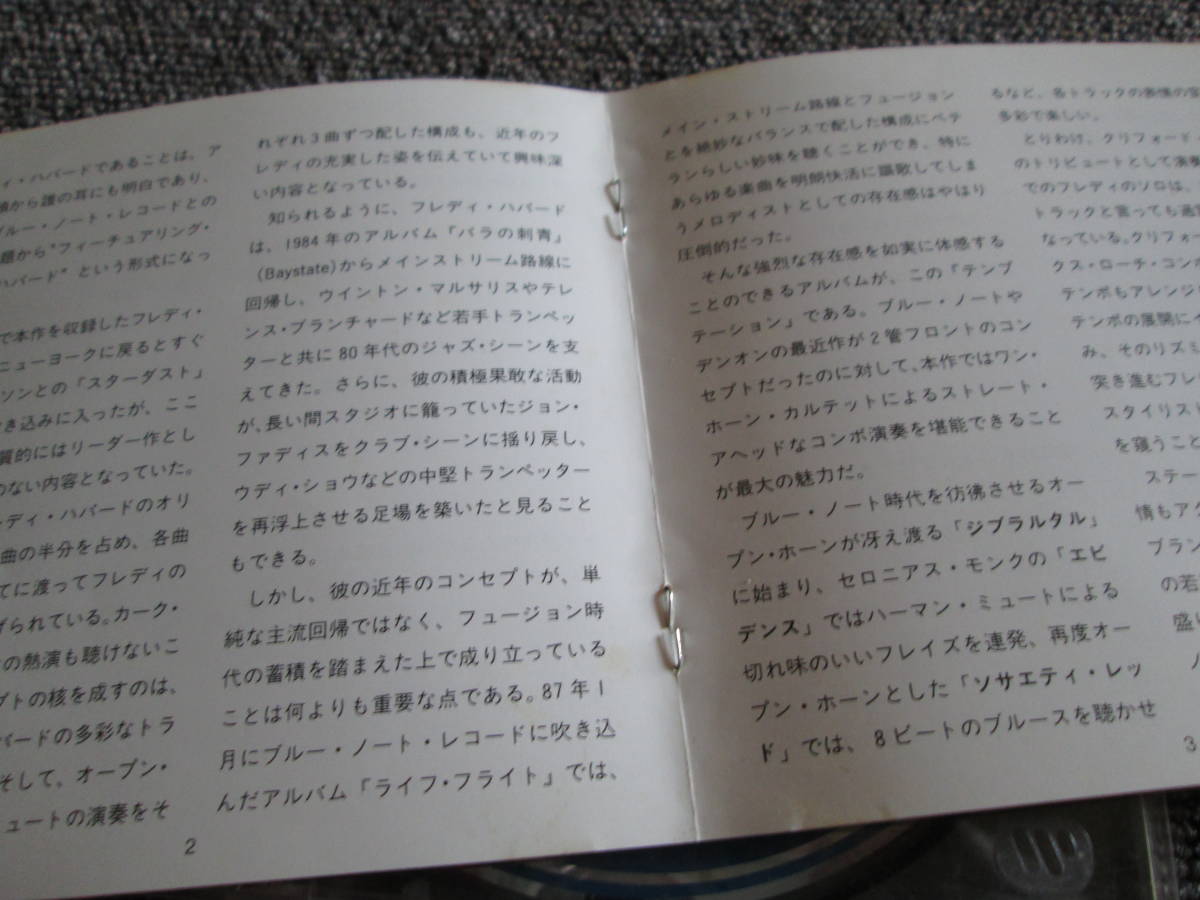 ィ・ハバードであることは、ア
頭から誰の耳にも明白であり、
ブルー・ノート・レコードとの
題から“フィーチュアリング・
ハバード”という形式になっ
で本作を収録したフレディ・
ニューヨークに戻るとすぐ
ソンとの「スターダスト」
き込みに入ったが、ここ
質的にはリーダー作とし
のない内容となっていた。
レディ・ハバードのオリ
曲の半分を占め、各曲
てに渡ってフレディの
げられている。カーク・
の熱演も聴けないこ
プトの核を成すのは、
バードの多彩なトラ
そして、オープン・
ュートの演奏をそ
れぞれ3曲ずつ配した構成も、近年のフ
レディの充実した姿を伝えていて興味深
い内容となっている。
知られるように、フレディ・ハバード
は、1984年のアルバム「バラの刺青」
(Baystate)からメインストリーム路線に
回帰し、ウイントン・マルサリスやテレ
ンス・ブランチャードなど若手トランペッ
ターと共に80年代のジャズ・シーンを支
えてきた。さらに、彼の積極果敢な活動
が、長い間スタジオに籠っていたジョン・
ファディスをクラブ・シーンに揺り戻し、
ウディ・ショウなどの中堅トランペッター
を再浮上させる足場を築いたと見ること
もできる。
しかし、彼の近年のコンセプトが、単
純な主流回帰ではなく、フュージョン時
代の蓄積を踏まえた上で成り立っている
ことは何よりも重要な点である。87年1
月にブルー・ノート・レコードに吹き込
んだアルバム「ライフ・フライト」では、
2
メイン・ストリーム路線とフュージョン
とを絶妙なバランスで配した構成にベテ
ランらしい妙味を聴くことができ、特に
あらゆる楽曲を明朗快活に謳歌してしま
うメロディストとしての存在感はやはり
圧倒的だった。
そんな強烈な存在感を如実に体感する
ことのできるアルバムが、この「テンプ
テーション」である。ブルー・ノートや
デンオンの最近作が2管フロントのコン
セプトだったのに対して、本作ではワン・
ホーン・カルテットによるストレート・
アヘッドなコンボ演奏を堪能できること
が最大の魅力だ。
ブルー・ノート時代を彷彿させるオー
プン・ホーンが冴え渡る「ジブラルタル」
に始まり、セロニアス・モンクの「エビ
デンス」ではハーマン・ミュートによる
切れ味のいいフレイズを連発、再度オー
プン・ホーンとした「ソサエティ・レッ
ド」では、8ビートのブルースを聴かせ
るなど、各トラックの表情の変
多彩で楽しい。
とりわけ、クリフォード・
のトリビュートとして演奏
でのフレディのソロは、
トラックと言っても過
なっている。クリフォー
クス・ローチ・コンボ
テンポもアレンジ
テンポの展開に
み、そのリズミ
突き進むフレ
スタイリス
を窺うこと
ステー
情もアク
ブラン
の若
盛り
3